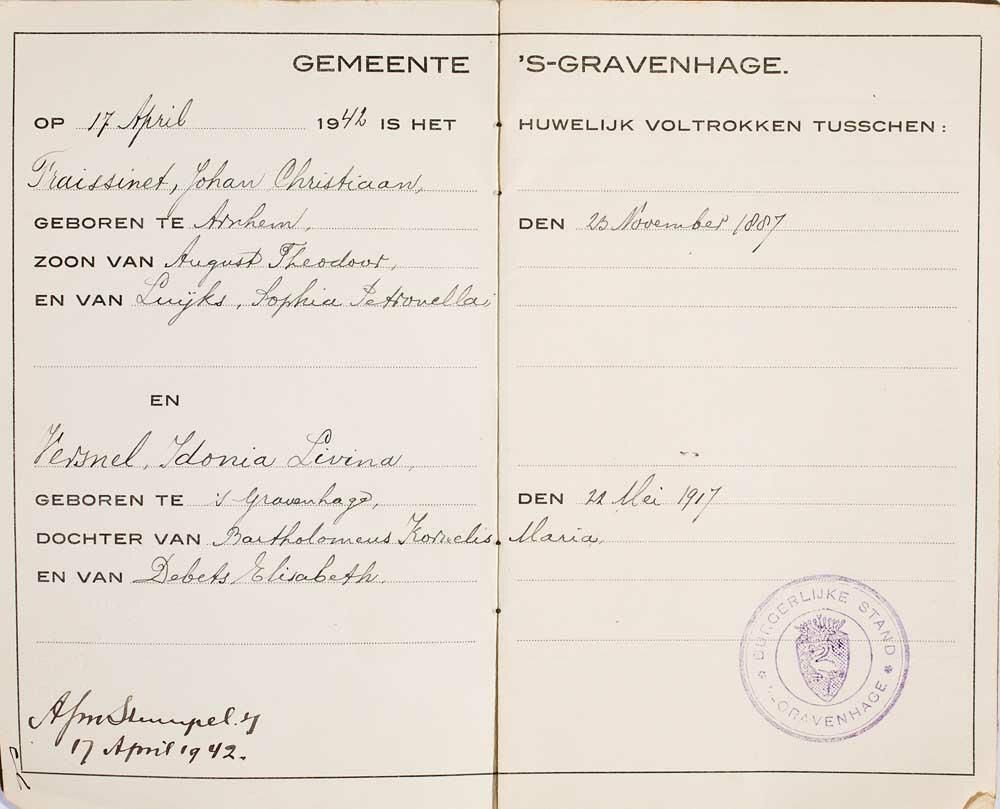 GEMEENTE 'S-GRAVENHAGE.
OP 17 April 1942 IS HET HUWELIJK VOLTROKKEN TUSSCHEN:
Fraissinet, Johan Christiaan,
GEBOREN TE Arnhem, DEN 23 November 1887
ZOON VAN August Theodoor,
EN VAN Luijks, Sophia Petronella;
EN
Versnel, Idonia Livina,
GEBOREN TE 's Gravenhage, DEN 22 Mei 1917
DOCHTER VAN Bartholomeus Kornelis Maria,
EN VAN Debets, Elisabeth.
BURGERLIJKE STAND
'S-GRAVENHAGE
17 April 1942.